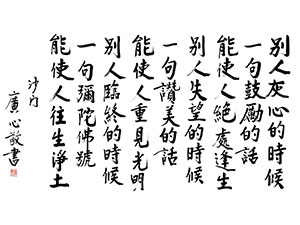 別人灰心的時候
一句鼓勵的話
能使人絕處逢生
別人失望的時候
一句讚美的話
能使人重見光明
別人臨終的時候
一句彌陀佛號
能使人往生淨土
沙門
廣心敬書